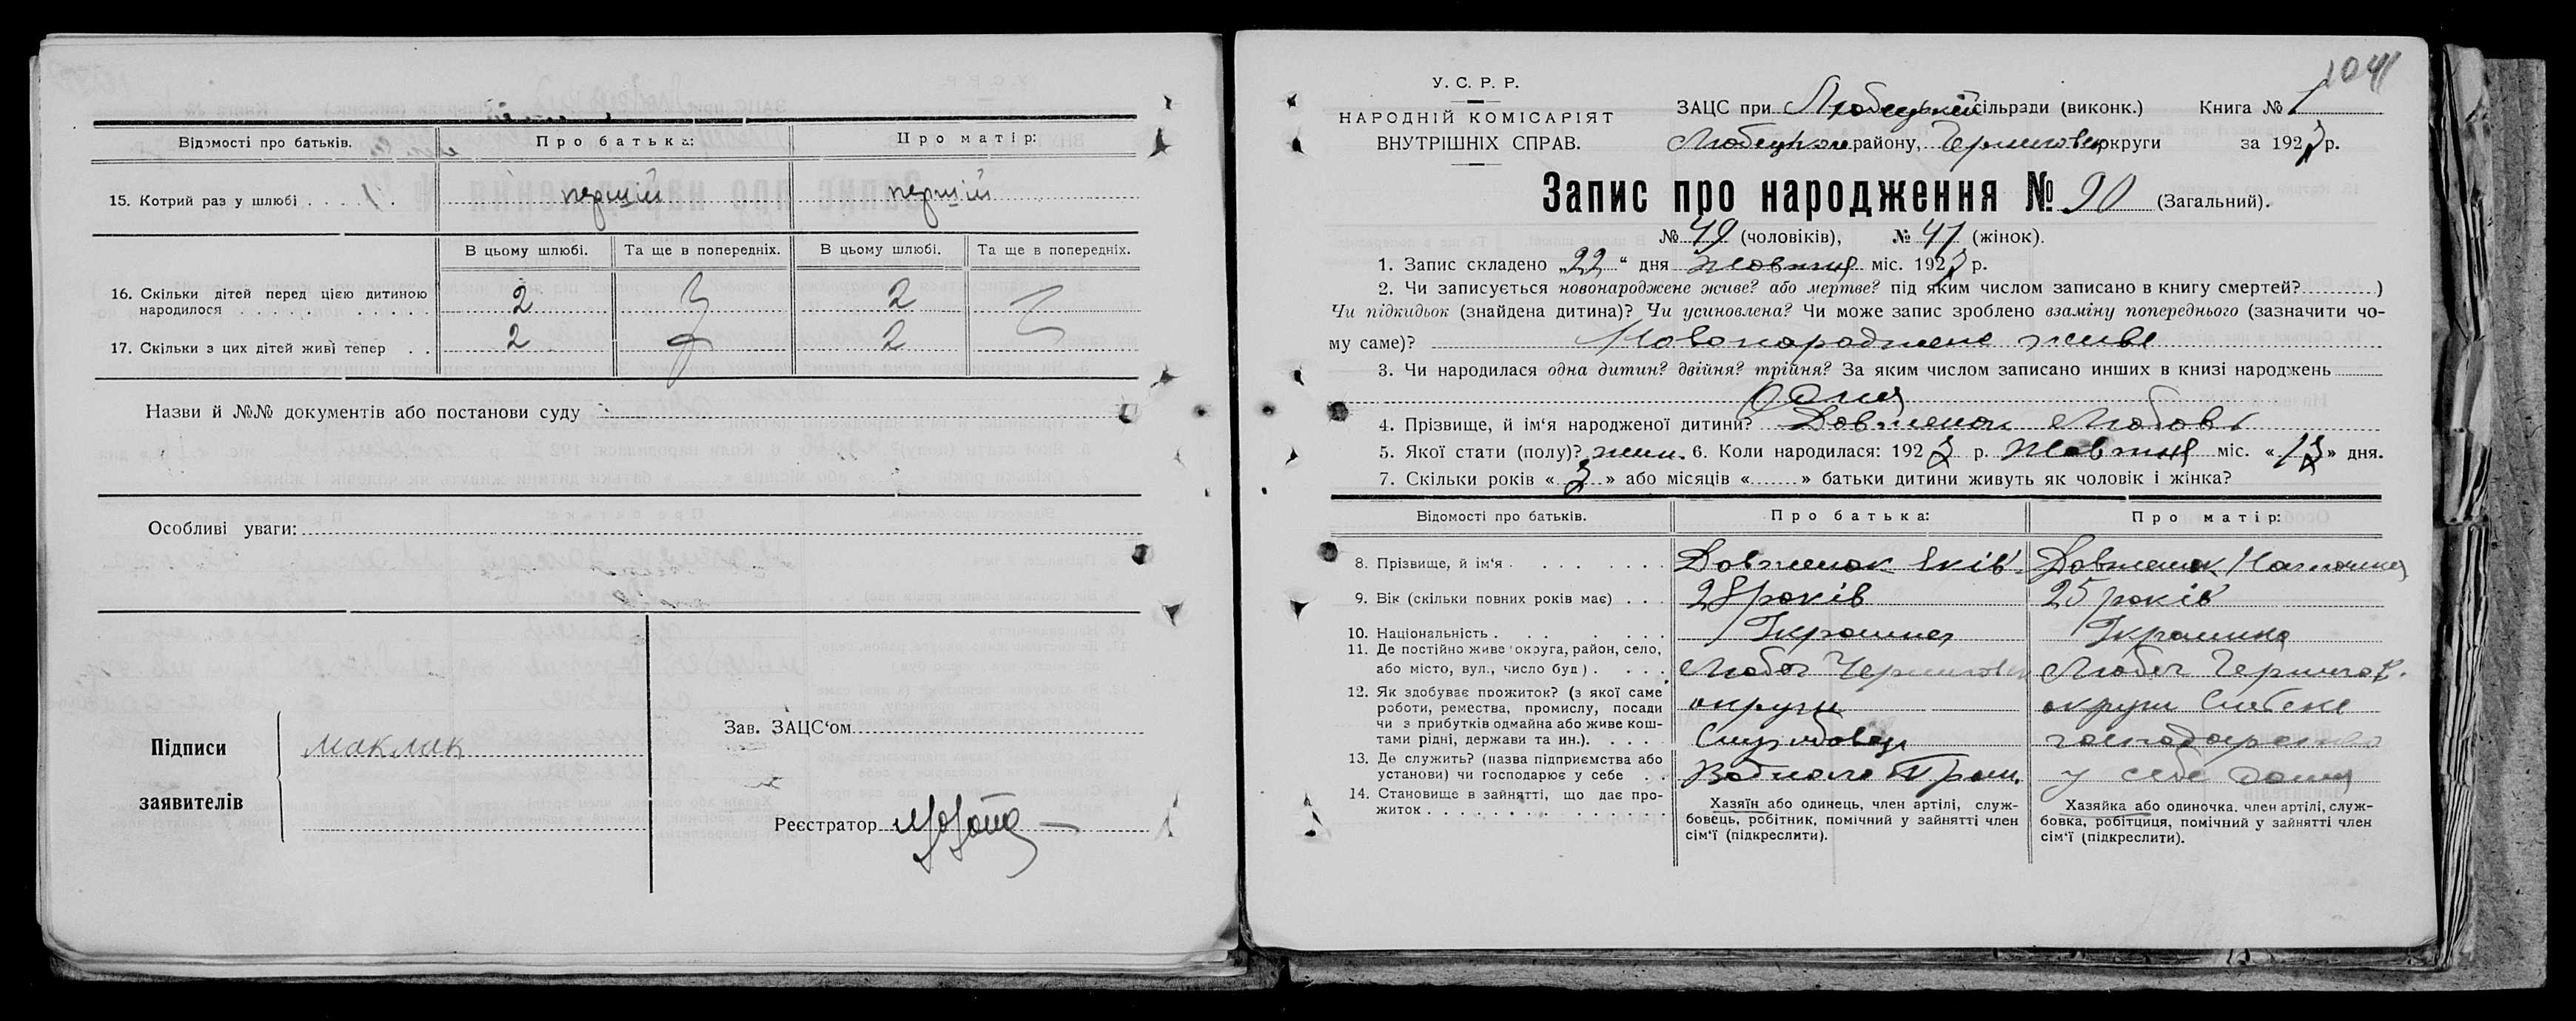 Відомості про батьків.
Про батька:
Про матір:
15. Котрий раз у шлюбі . . . . . .
першій
першій
В цьому шлюбі.
Та ще в попередніх.
В цьому шлюбі.
Та ще в попередніх.
16. Скільки дітей перед цією дитиною
народилося . . . . . . . . . .
2
2
17. Скільки з цих дітей живі тепер . .
2
2
Назви й №№ документів або постанови суду
Особливі уваги:
Підписи
заявителів
Маклак
Зав. ЗАЦС'ом
Реєстратор
1041
У. С. Р. Р.
НАРОДНІЙ КОМІСАРІЯТ
ВНУТРІШНІХ СПРАВ.
ЗАЦС при Любецькій сільради (виконк.) Книга № 1
Любецького району, Чернигівськ округи за 1927 р.
Запис про народження № 90 (Загальний).
№ 49 (чоловіків), № 41 (жінок).
1. Запис складено „22“ дня Жовтня міс. 1927 р.
2. Чи записується новонароджене живе? або мертве? під яким числом записано в книгу смертей? )
Чи підкидьок (знайдена дитина)? Чи усиновлена? Чи може запис зроблено взаміну попереднього (зазначити чо-
му саме)? Новонароджене живе
3. Чи народилася одна дитин? двійня? трійня? За яким числом записано инших в книзі народжень
Одна
4. Прізвище, й ім'я народженої дитини? Довженок Любовь
5. Якої стати (полу)? жин. 6. Коли народилася: 1927 р. Жовтня міс. «17» дня.
7. Скільки років « » або місяців « » батьки дитини живуть як чоловік і жінка?
Відомості про батьків.
Про батька:
Про матір:
8. Прізвище, й ім'я . . . . . . . .
Довженок Яків
Довженок
9. Вік (скільки повних років має) . . .
28 років
25 років
10. Національність . . . . . . .
Україинец
Україинка
11. Де постійно живе (округа, район, село,
або місто, вул., число буд) . . . .
Любеч
Любеч Чернигов.
12. Як здобуває прожиток? (з якої саме
роботи, ремества, промислу, посади
чи з прибутків одмайна або живе кош-
тами рідні, держави та ин.). . . . .
округи
Службовець
округи Сільське
господарство
13. Де служить? (назва підприємства або
установи) чи господарює у себе . .
Водного Тран.
у себе дома
14. Становище в зайнятті, що дає про-
житок . . . . . . . . . . . . . .
Хазяїн або одинець, член артілі, служ-
бовець, робітник, помічний у зайнятті член
сім'ї (підкреслити).
Хазяйка або одиночка. член артілі, служ-
бовка, робітциця, помічний у зайнятті член
сім'ї (підкреслити).